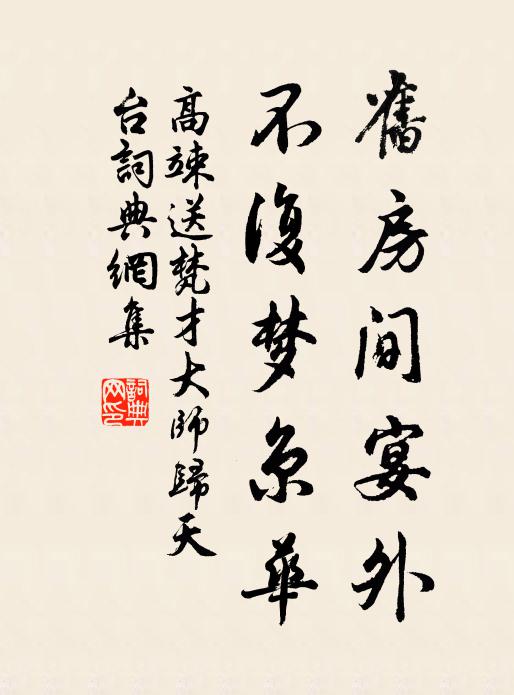 舊房间宴外
不復梦京華
高竦送梵才大师歸天
台詞典網集
詞典网印